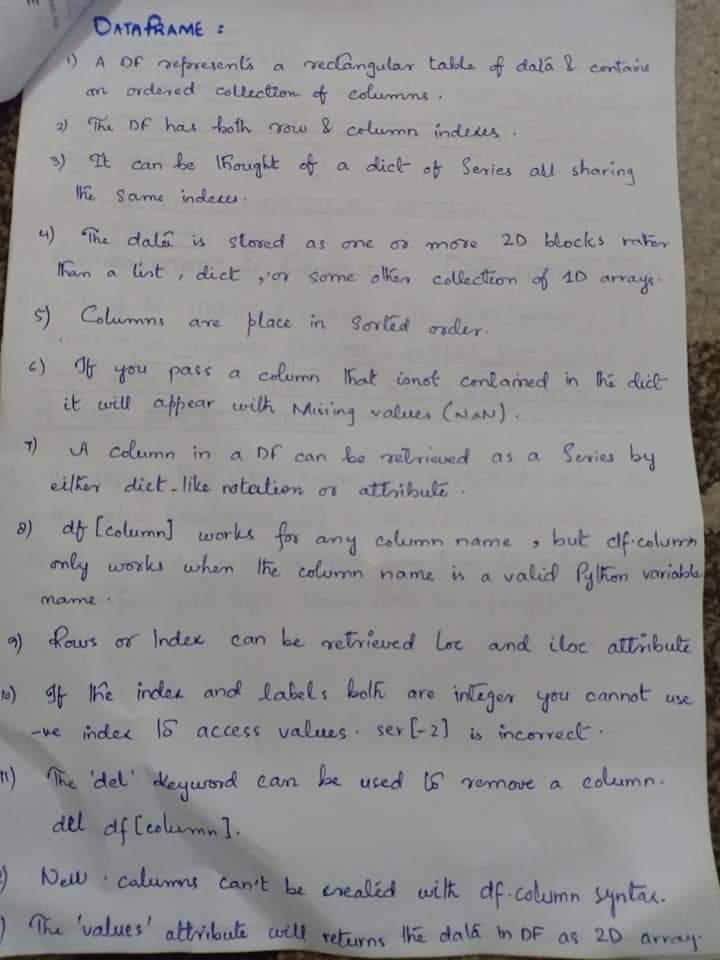 DATAFRAME :
1) A DF represents a rectangular table of data & contains
an ordered collection of columns.
2) The DF has both row & column indexes.
3) It can be thought of a dict of Series all sharing
the same indexes.
4) The data is stored as one or more 2D blocks rather
than a list, dict, or some other collection of 1D arrays.
5) Columns are place in sorted order.
6) If you pass a column that isnot contained in the dict
it will appear with Missing values (NaN).
7) A column in a DF can be retrieved as a Series by
either dict-like notation or attribute.
8) df[column] works for any column name, but df.column
only works when the column name is a valid Python variable
name.
9) Rows or Index can be retrieved Loc and iloc attribute
10) If the index and labels both are integer you cannot use
-ve index to access values. ser[-2] is incorrect.
11) The 'del' keyword can be used to remove a column.
del df[column].
) New columns can't be created with df.column syntax.
) The 'values' attribute will returns the data in DF as 2D array.